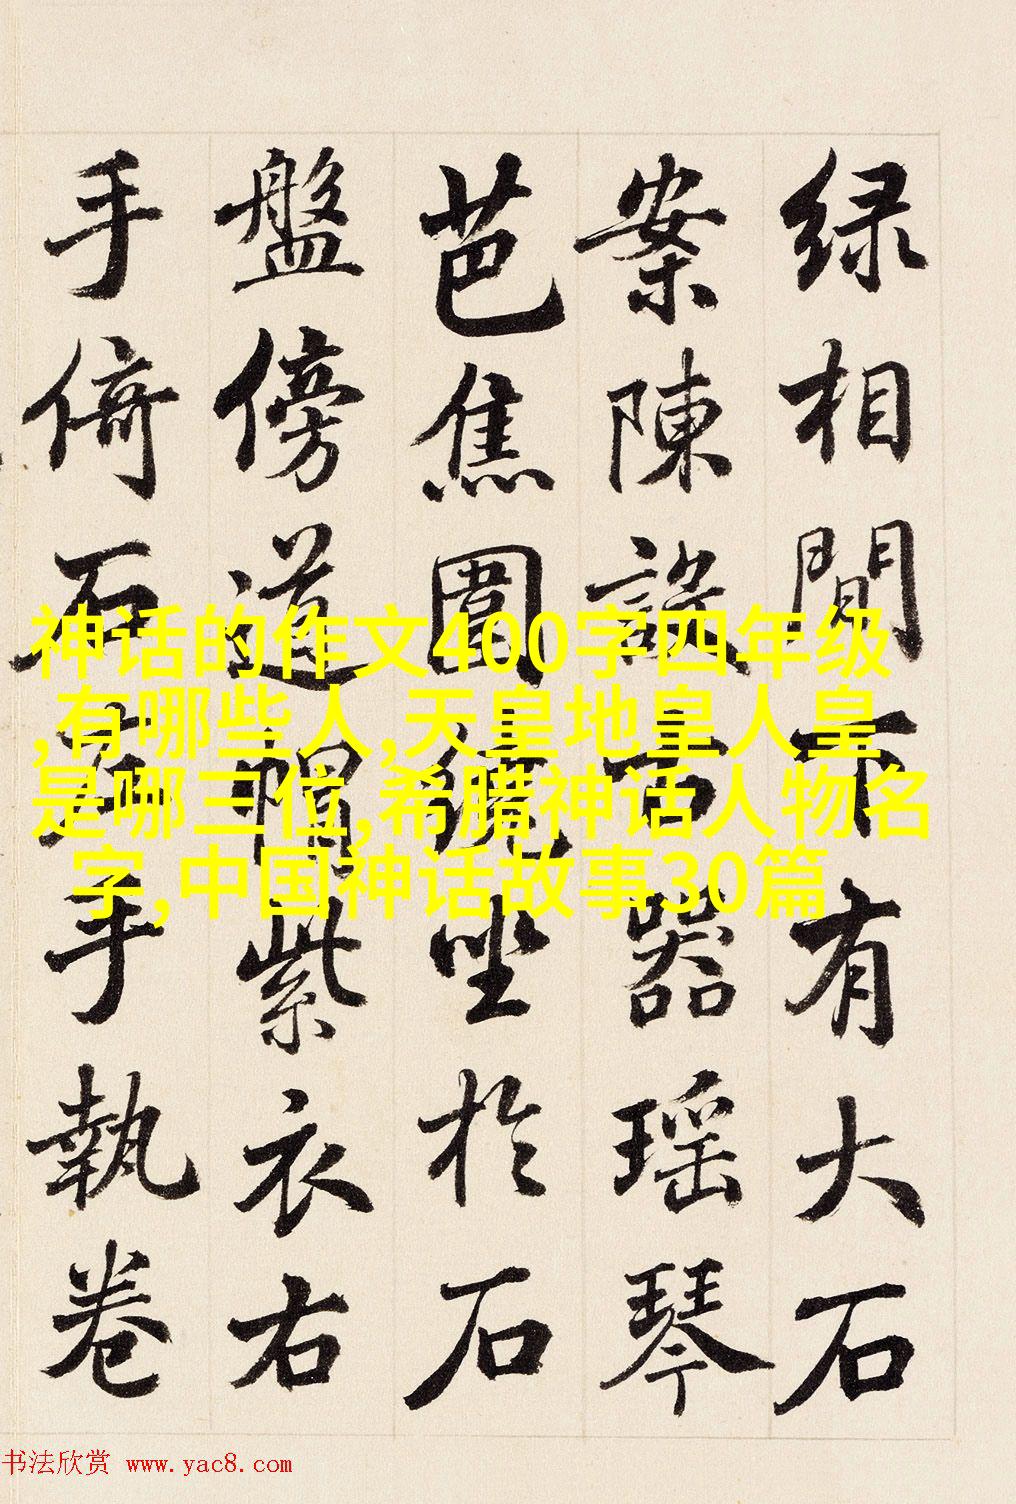 绿相間下有大石
案陳設古器瑶琴
芭焦圍繞坐於石
盤傍道帽紫衣右
手倚石左手執卷
神话的作文400字四年级
,有哪些人,天皇地皇人皇
是哪三位,希腊神话人物名
字,中国神话故事30篇
书法欣赏 www.yac8.com